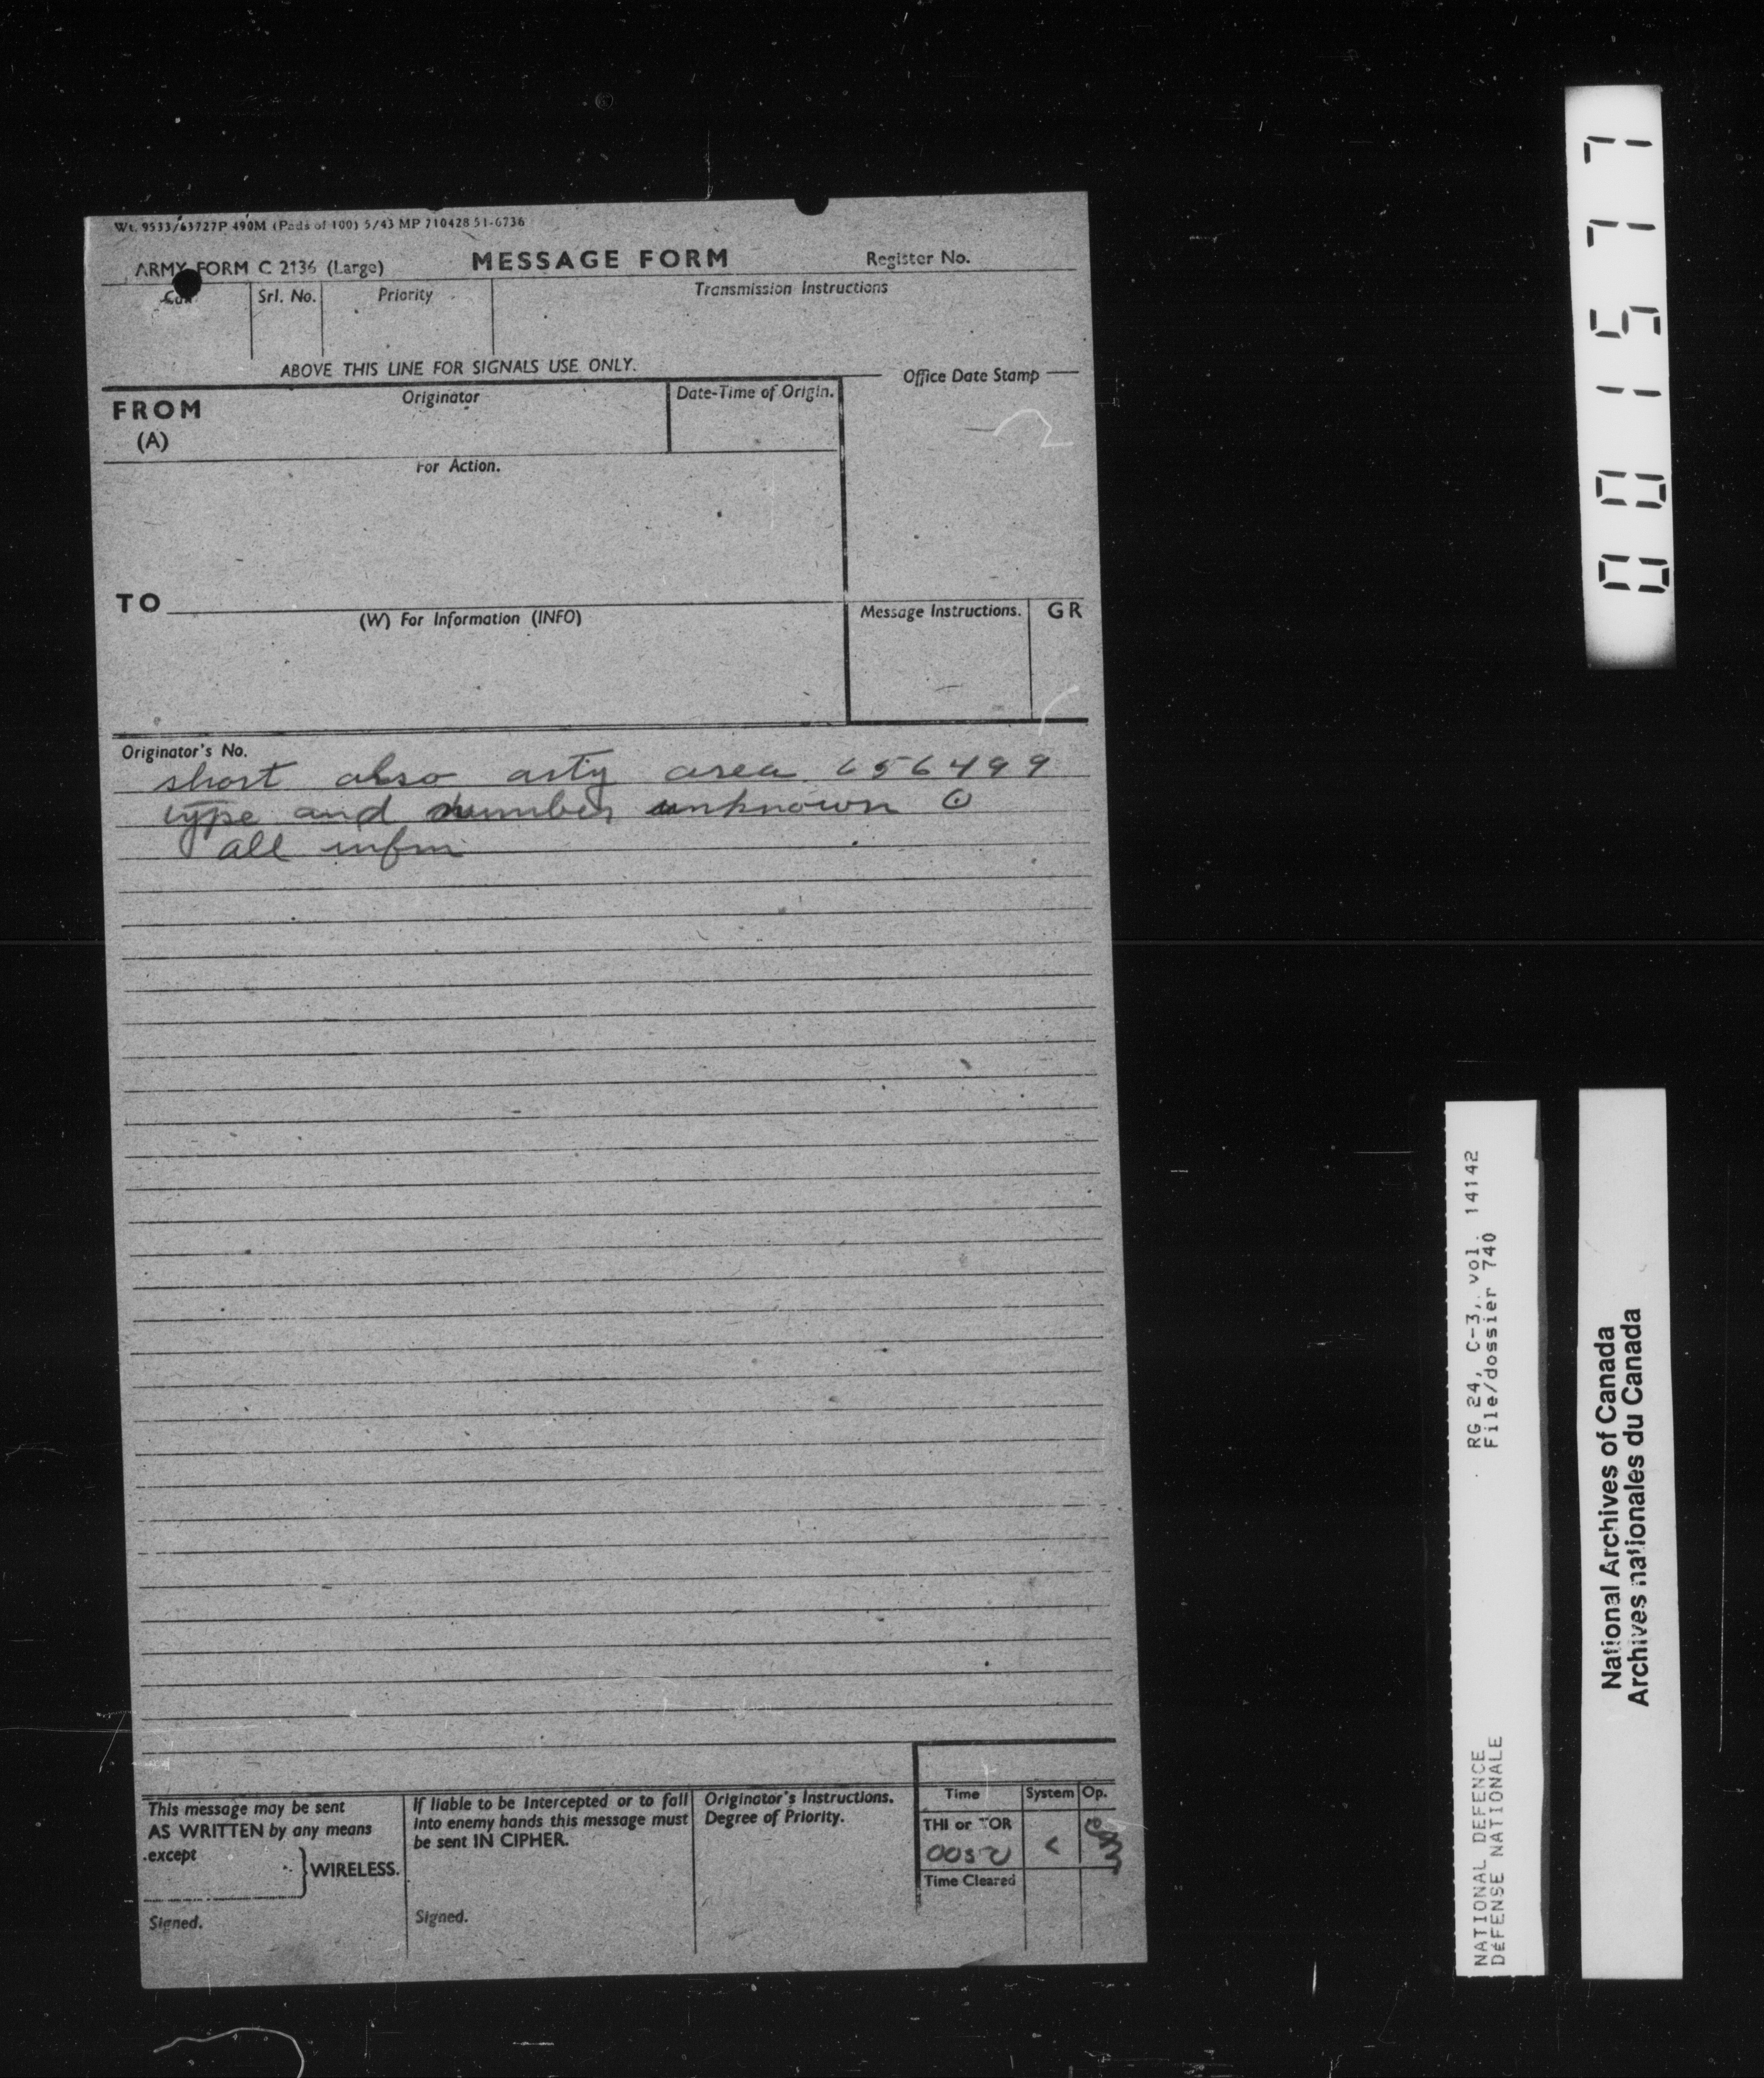 Wt. 9533/63727P 490M (Pads of 100) 5/43 MP 710428 51-6736
ARMY FORM C 2136 (Large) MESSAGE FORM Register No.
Call Srl. No. Priority Transmission Instructions
ABOVE THIS LINE FOR SIGNALS USE ONLY.
Office Date Stamp
FROM Originator Date-Time of Origin.
(A)
For Action.
TO
(W) For Information (INFO) Message Instructions. GR
Originator's No.
short also arty area 656499
type and number unknown ⊙
all infm
This message may be sent
AS WRITTEN by any means
except
WIRELESS.
Signed.
If liable to be intercepted or to fall
into enemy hands this message must
be sent IN CIPHER.
Signed.
Originator's Instructions.
Degree of Priority.
Time System Op.
THI or TOR
Time Cleared
001577
RG 24, C-3, vol. 14142
File/dossier 740
NATIONAL DEFENCE
DÉFENSE NATIONALE
National Archives of Canada
Archives nationales du Canada